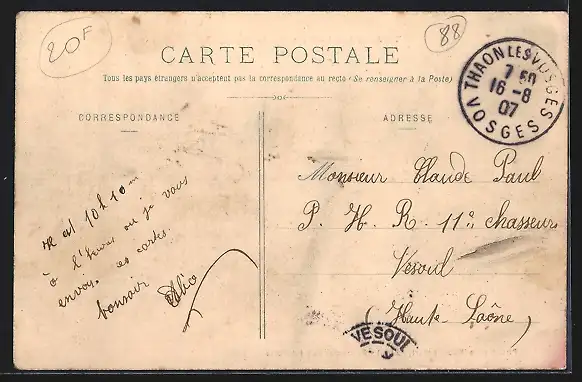 20F
88
CARTE POSTALE
Tous les pays étrangers n'acceptent pas la correspondance au recto (Se renseigner à la Poste)
CORRESPONDANCE
ADRESSE
THAON LES VOSGES
7 50
16 -8
07
VOSGES
est 10h10m
à l'heure où je vous
envoye ces cartes.
bonsoir
Monsieur Claude Paul
P. H. R. 11e chasseurs
Vesoul
(Haute Saône)
VESOUL